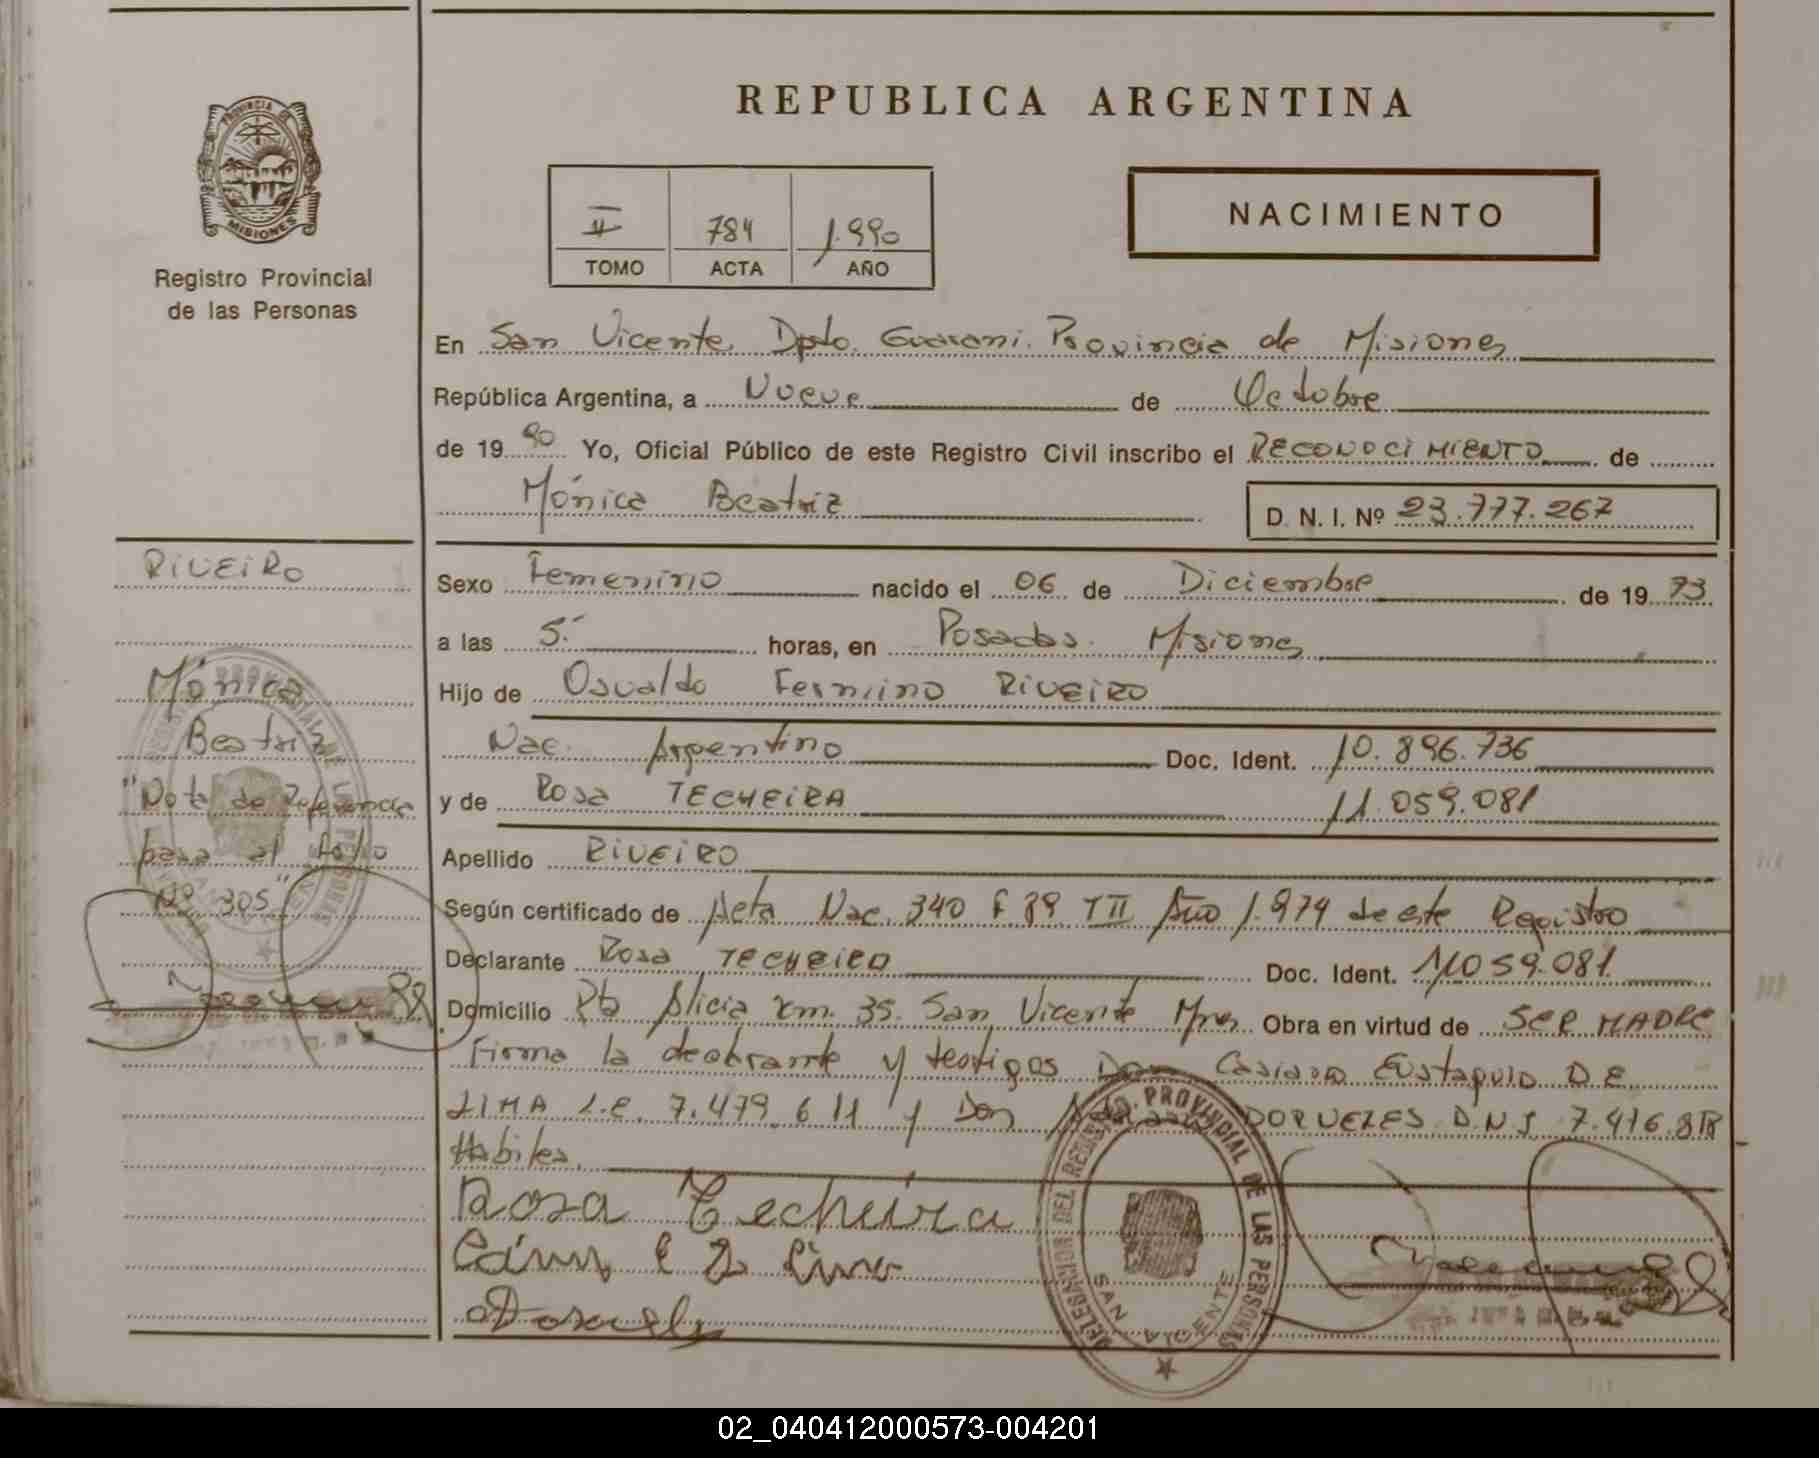 REPUBLICA ARGENTINA
PROVINCIA DE
MISIONES
Registro Provincial
de las Personas
II 784 1.990
TOMO ACTA AÑO
NACIMIENTO
En San Vicente Dpto. Guarani. Provincia de Misiones
República Argentina, a Nueve de Octubre
de 19 90 Yo, Oficial Público de este Registro Civil inscribo el RECONOCIMIENTO de
Mónica Beatriz D. N. I. Nº 23.777.267
RIVEIRO
Mónica
Beatriz
"Nota de Referencia
pasa al folio
Nº 305"
Sexo Femenino nacido el 06 de Diciembre de 19 73
a las 5.- horas, en Posadas. Misiones
Hijo de Osvaldo Fermino RIVEIRO
Nac. Argentino Doc. Ident. 10.896.736
y de Rosa TECHEIRA 11.059.081
Apellido RIVEIRO
Según certificado de Acta Nac. 340 F 39 T II Año 1.974 de este Registro
Declarante Rosa TECHEIRA Doc. Ident. 11.059.081
Domicilio Pto Alicia Km. 35. San Vicente Mnes Obra en virtud de SER MADRE
Firma la declarante y testigos Don Casiano Eustaquio DE
LIMA L.E. 7.479.611 y Don DORNELES D.N.I. 7.416.818
Habiles.
Rosa Techeira
DELEGACION DEL REGISTRO PROVINCIAL DE LAS PERSONAS
SAN VICENTE
02_040412000573-004201